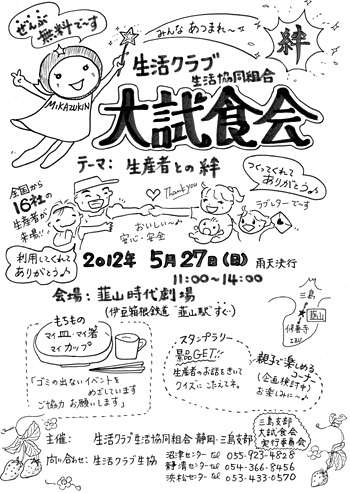 ぜんぶ
無料で〜す
みんな あつまれ〜っ
絆
MiKAZUKIN
生活クラブ
生活協同組合
大試食会
テーマ: 生産者との絆
全国から
16社の
生産者が
来場!!
Thank you
つくってくれて
ありがとう♪
ラブレターで〜す
おいし〜い♪
安心・安全
利用してくれて
ありがとう♪
2012年 5月27日(日) 雨天決行
11:00〜14:00
会場: 韮山時代劇場
(伊豆箱根鉄道 韮山駅 すぐ)
三島
韮山
修善寺
もちもの
マイ皿・マイ箸
マイカップ
「ゴミの出ないイベントを
めざしています
ご協力 お願いします」
スタンプラリー
景品GET!!
生産者のお話をきいて
クイズに こたえてネ。
親子で楽しめる
コーナー
(企画検討中)
お楽しみに〜♪
三島支部
大試食会
実行委員会
主催: 生活クラブ生活協同組合 静岡・三島支部
問い合わせ: 生活クラブ生協 沼津センター tel 055-923-4828
静清センター tel 054-366-8456
浜松センター tel 053-433-0570